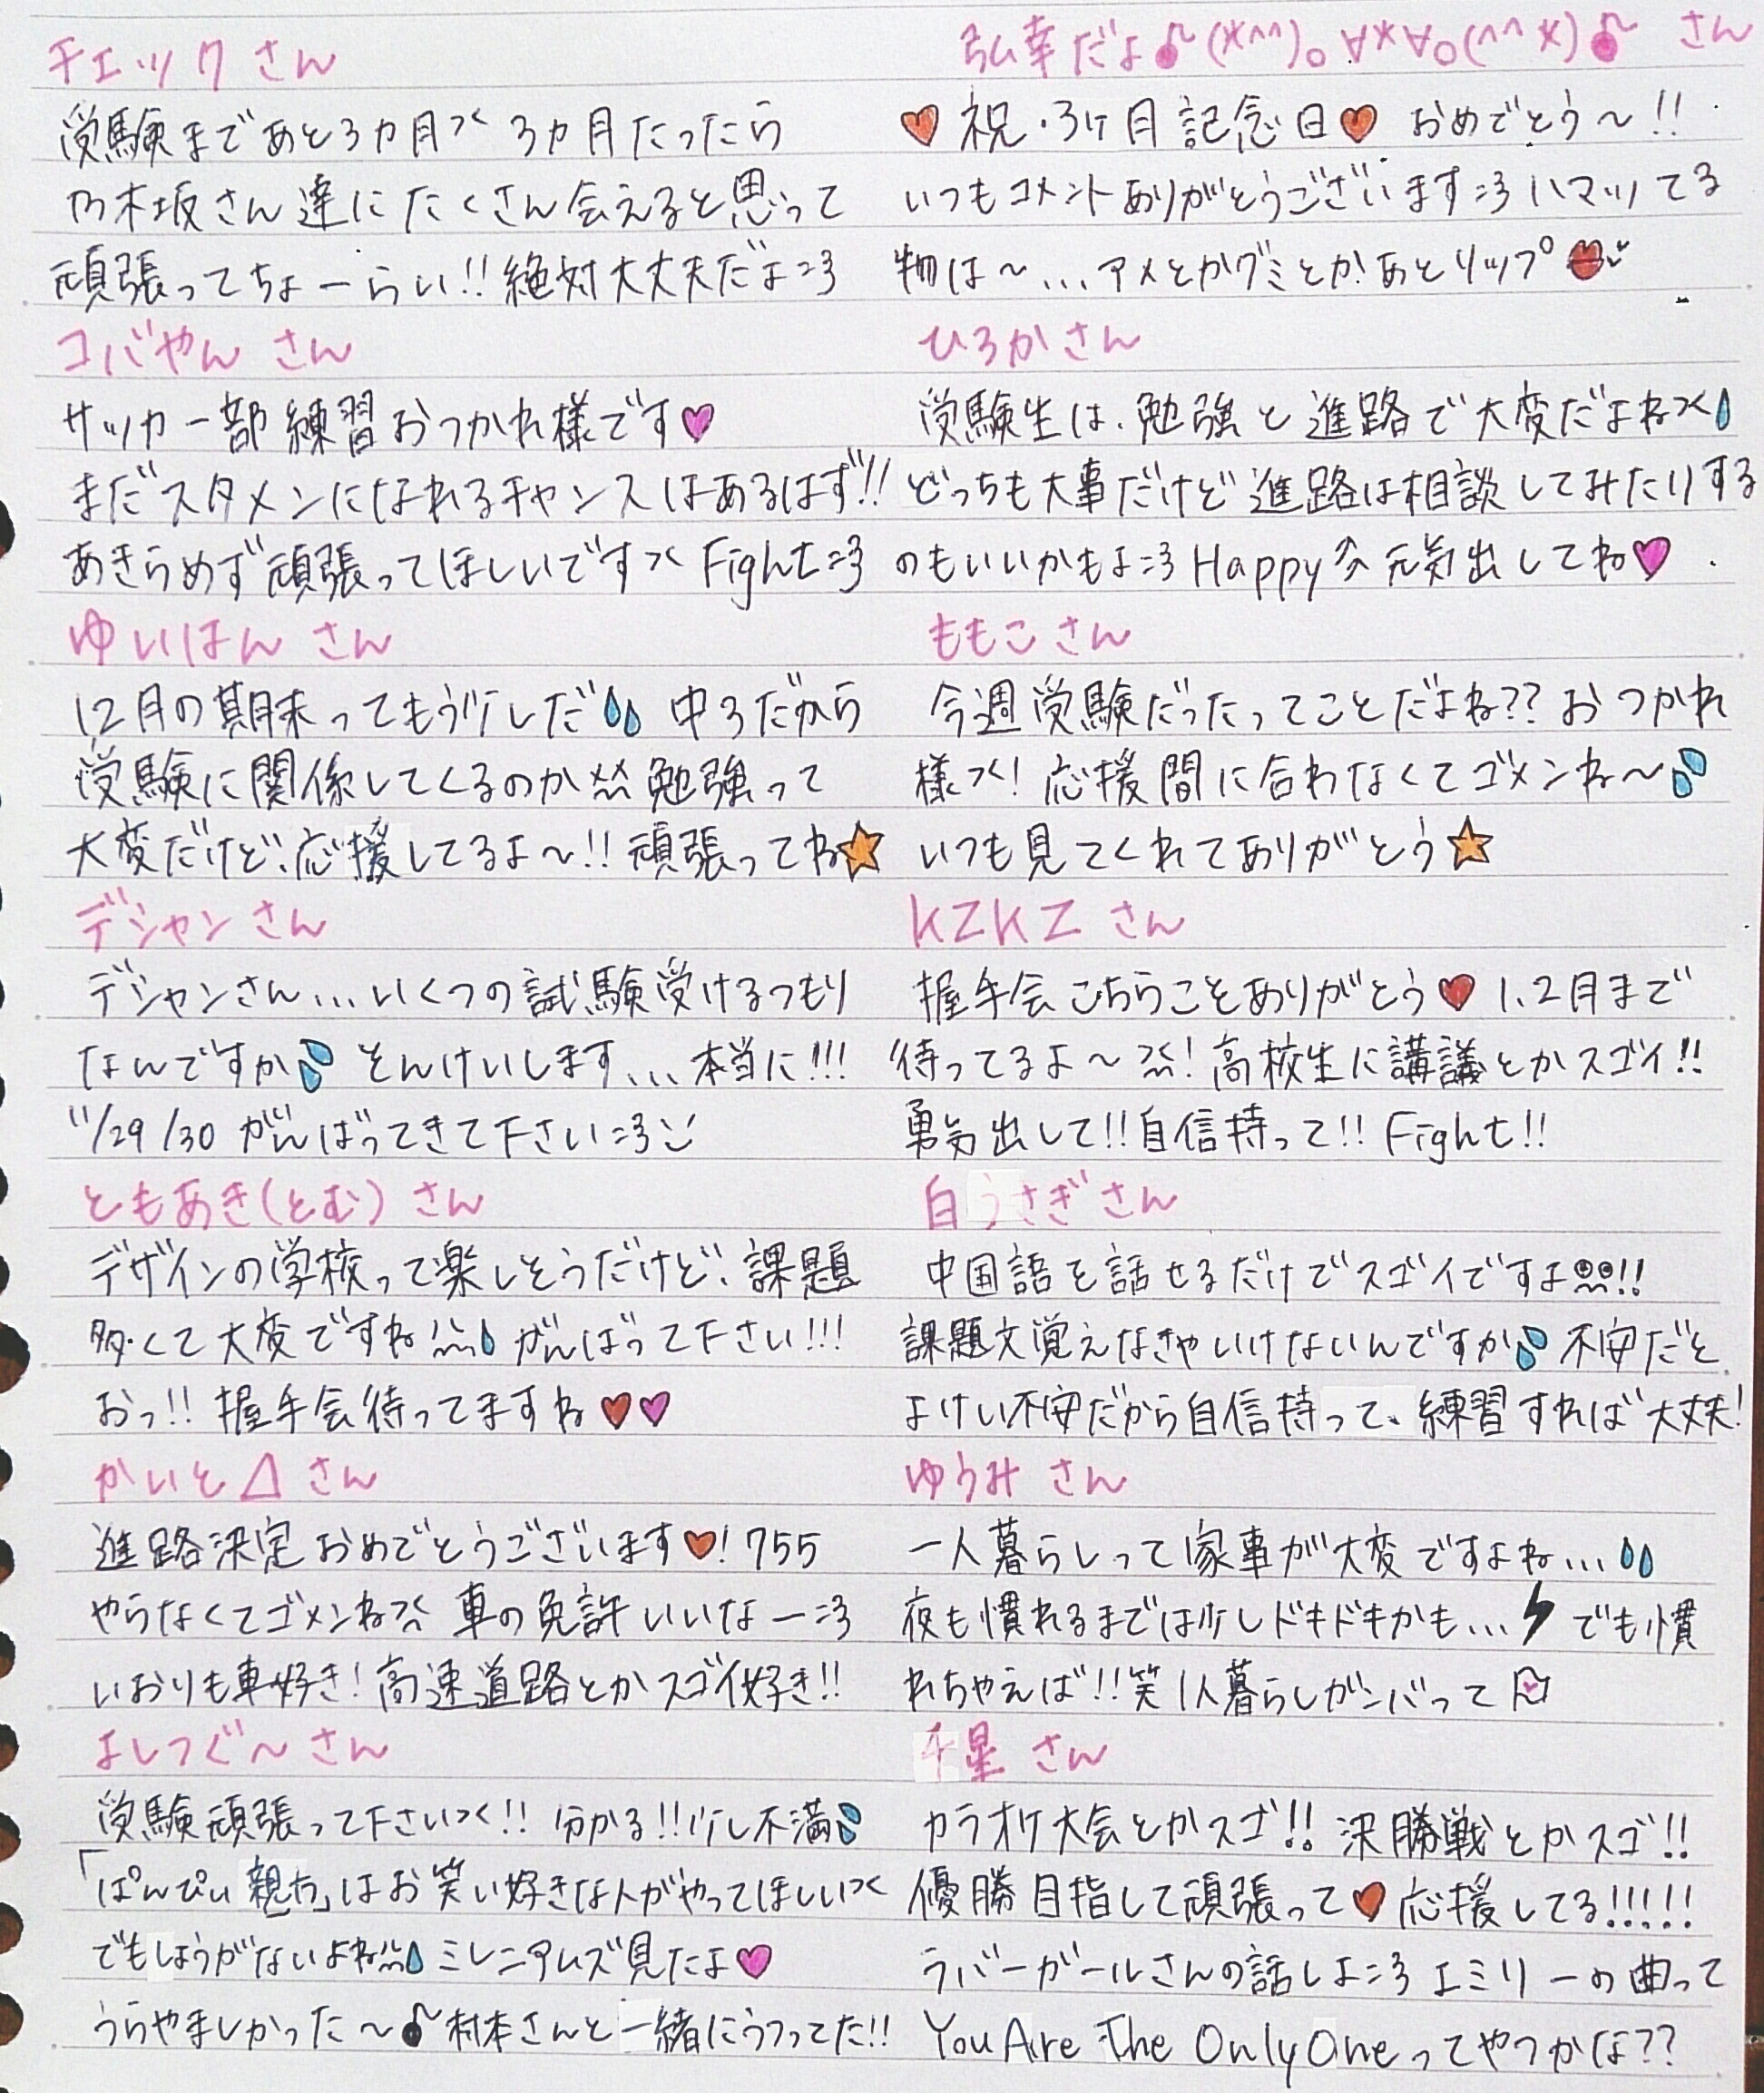 チェックさん
受験まであと3カ月>< 3カ月たったら
乃木坂さん達にたくさん会えると思って
頑張ってちょーらい!!絶対大丈夫だよ=3
コバやん さん
サッカー部練習おつかれ様です♥
まだスタメンになれるチャンスはあるはず!!
あきらめず頑張ってほしいです>< Fight=3
ゆいはん さん
12月の期末ってもう少しだ 中3だから
受験に関係してくるのか 勉強って
大変だけど、応援してるよ〜!!頑張ってね★
デシャンさん
デシャンさん...いくつの試験受けるつもり
なんですか そんけいします...本当に!!!
11/29/30 がんばってきて下さい=3
ともあき(とむ) さん
デザインの学校って楽しそうだけど、課題
多くて大変ですね がんばって下さい!!!
おっ!!握手会待ってますね♥♥
かいと△ さん
進路決定おめでとうございます♥!755
やらなくてゴメンね 車の免許いいなー=3
いおりも車好き!高速道路とかスゴイ好き!!
よしつぐ〜さん
受験頑張って下さい><!!分かる!!少し不満
「ぱんぴぃ親方」はお笑い好きな人がやってほしい><
でもしょうがないよね ミレニアムズ見たよ♥
うらやましかった〜♪村本さんと一緒にうつってた!!
弘幸だよ♪(*^^)o∀*∀o(^^*)♪ さん
♥祝・3ヶ月記念日♥ おめでとう〜!!
いつもコメントありがとうございます=3ハマッてる
物は〜...アメとかグミとかあとリップ
ひろかさん
受験生は、勉強と進路で大変だよね><
どっちも大事だけど進路は相談してみたりする
のもいいかもよ=3 Happy 元気出してね♥
ももこさん
今週受験だったってことだよね??おつかれ
様><!応援間に合わなくてゴメンね〜
いつも見てくれてありがとう★
KZKZ さん
握手会こちらこそありがとう♥ 1、2月まで
待ってるよ〜!高校生に講議とかスゴイ!!
勇気出して!!自信持って!! Fight!!
白うさぎさん
中国語を話せるだけでスゴイですよ!!
課題文覚えなきゃいけないんですか 不安だと
よけい不安だから自信持って、練習すれば大丈夫!
ゆうみ さん
一人暮らしって家事が大変ですよね...
夜も慣れるまでは少しドキドキかも... でも慣
れちゃえば!!笑 1人暮らしガンバって
千星 さん
カラオケ大会とかスゴ!!決勝戦とかスゴ!!
優勝目指して頑張って♥応援してる!!!!!
ラバーガールさんの話しよ=3 エミリーの曲って
You Are The Only Oneってやつかな??